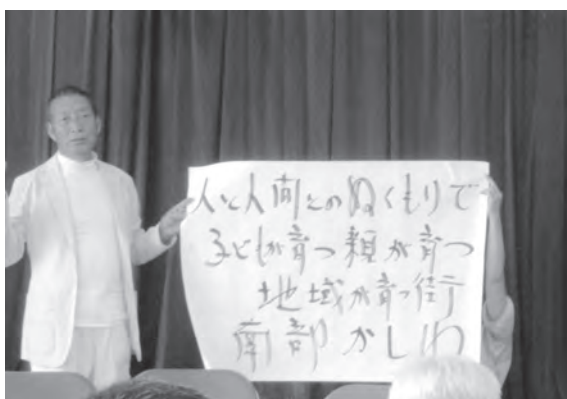 人と人間とのぬくもりで
子どもが育つ親が育つ
地域が育つ街
南部かしわ